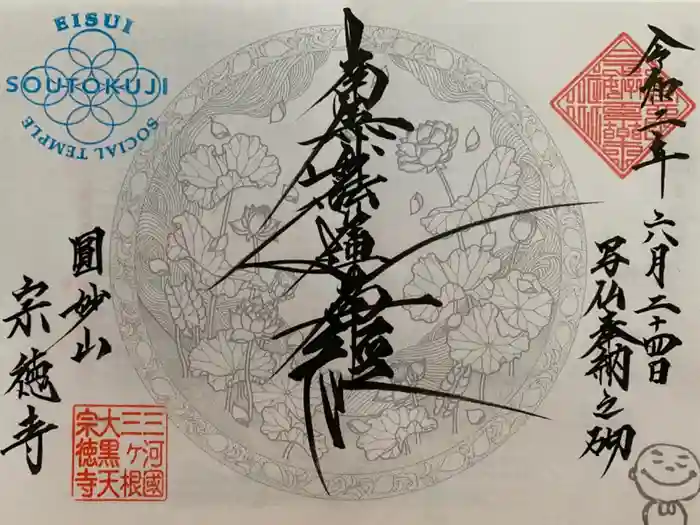 令和二年
六月二十四日
写仏奉納之砌
南無妙法蓮華経
EISUI
SOUTOKUJI
SOCIAL TEMPLE
圓妙山
宗徳寺
三河國
三ヶ根
大黒天
宗徳寺